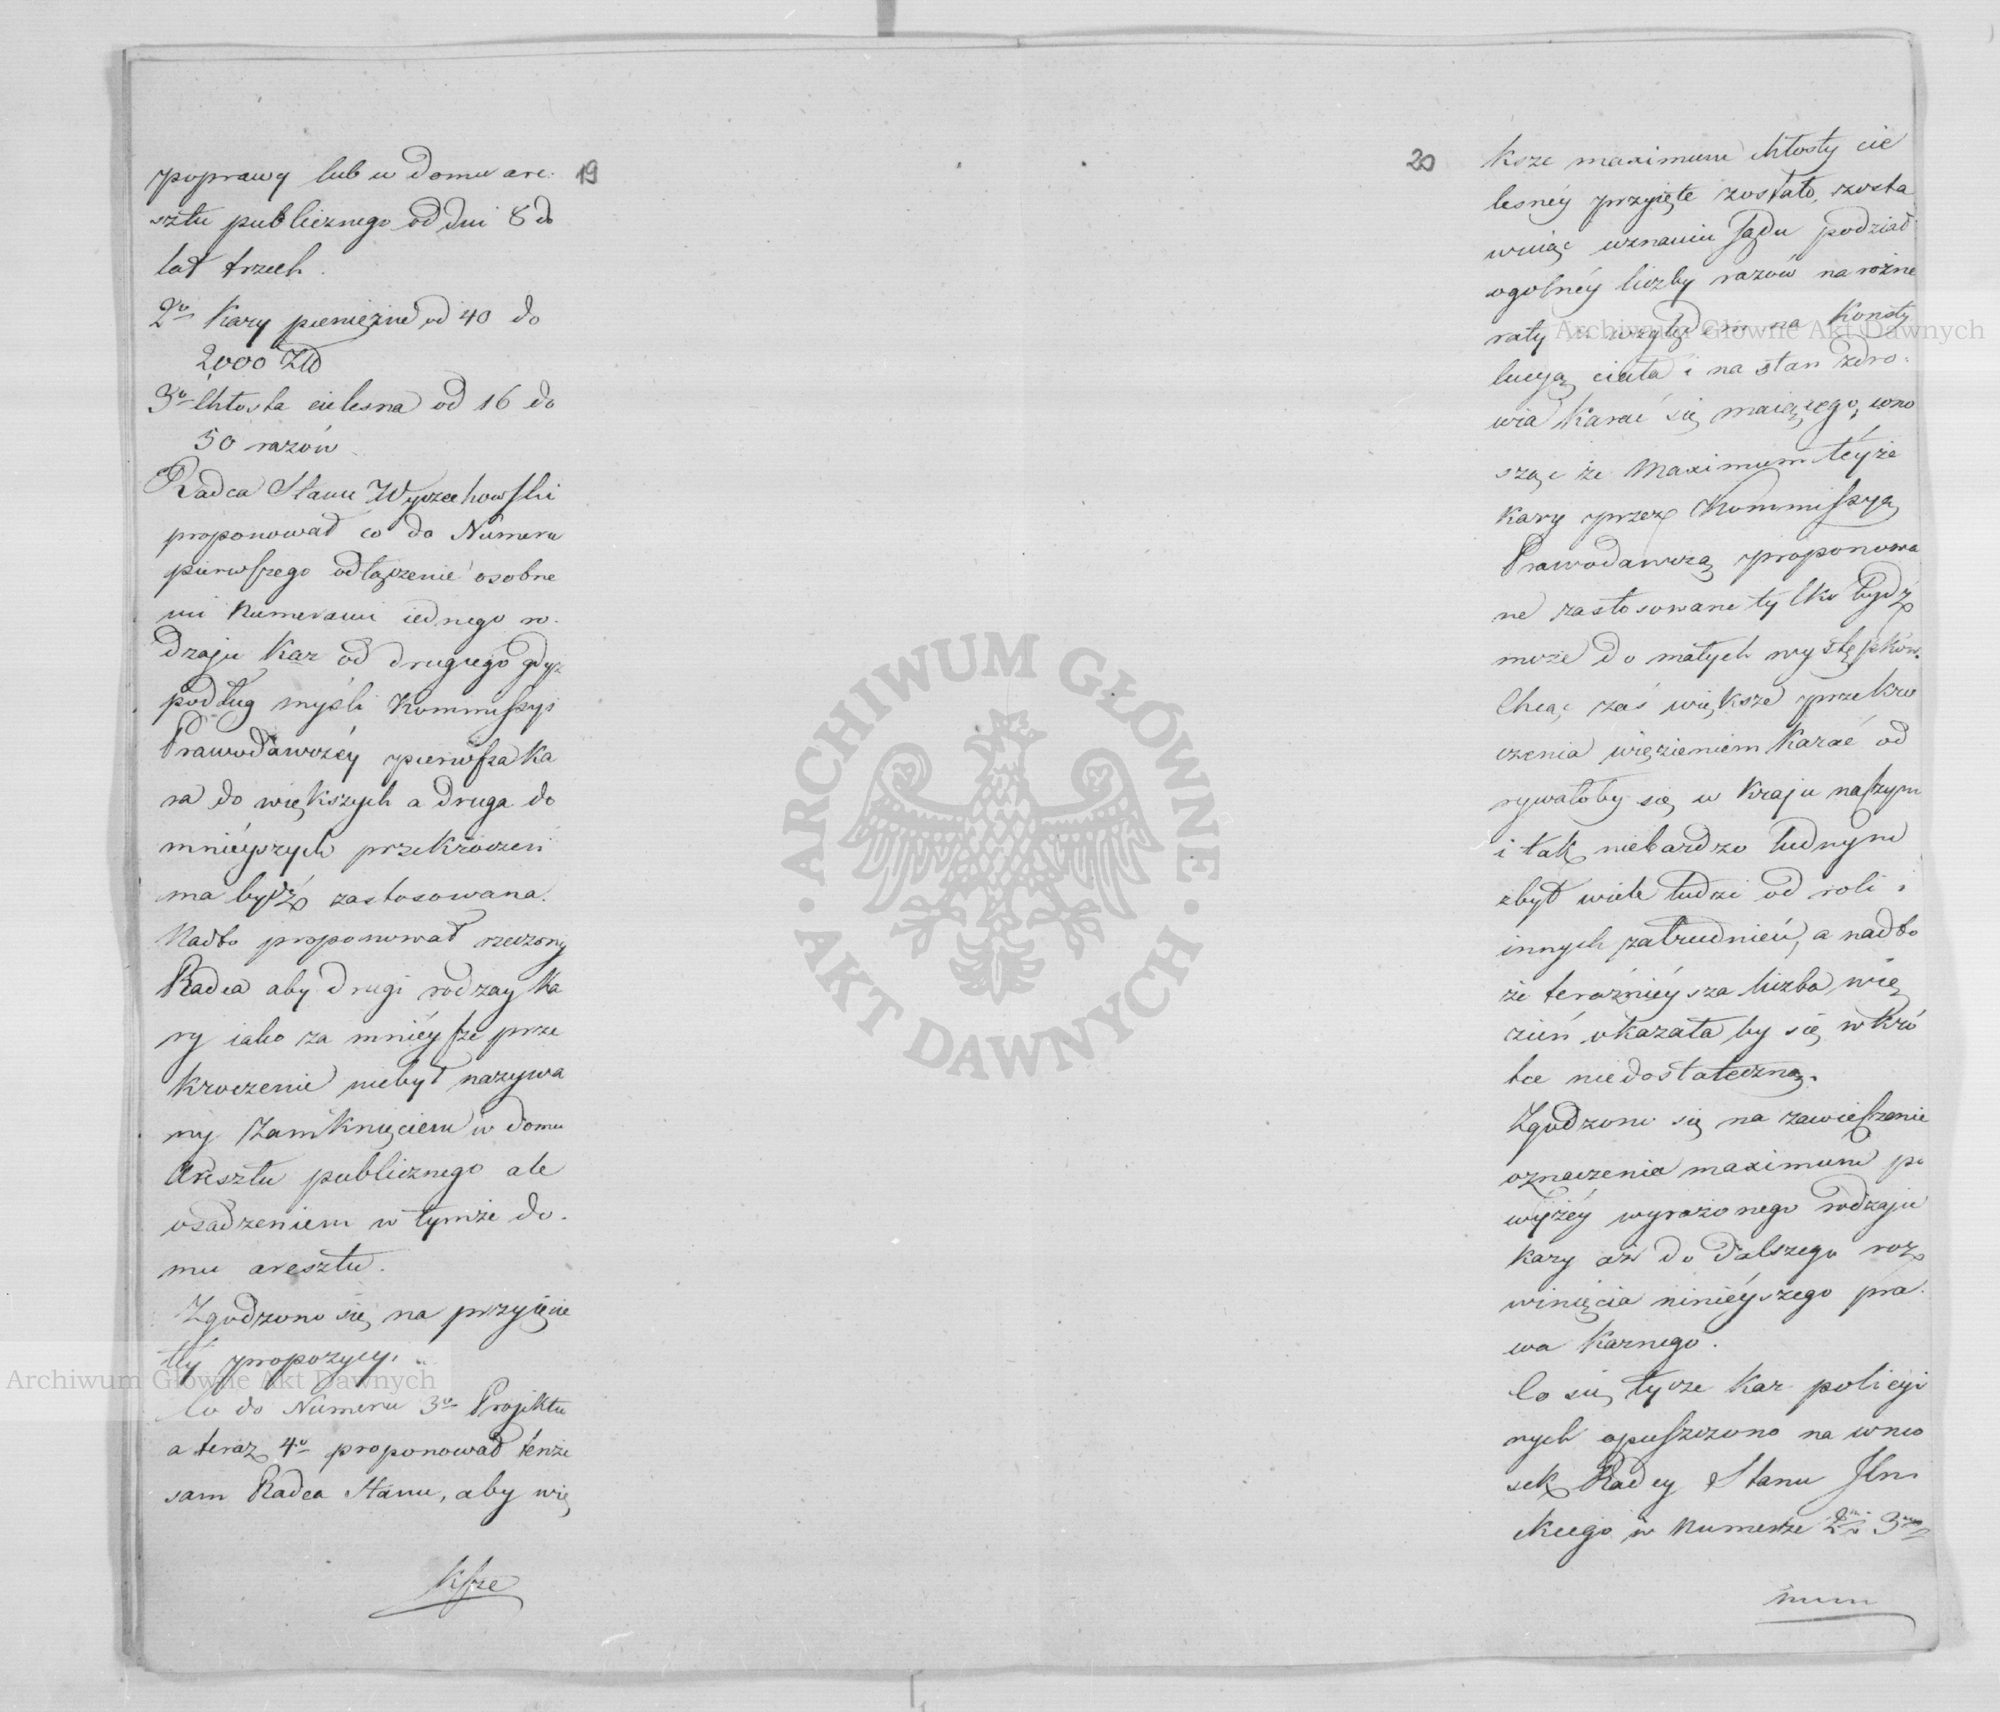 19
poprawy lub w domu are.
sztu publicznego od dni 8 do
lat trzech.
2o Kary pieniężne od 40 do
2000 Złł
3o Chłosta cielesna od 16 do
50 razów
Radca Stanu Wyczechowski
proponował co do Numeru
pierwszego odłączenie osobne
mi Numerami iednego ro.
dzaju Kar od drugiego gdyż
podług myśli Kommissyi
Prawodawczéy pierwsza Ka
ra do większych a druga do
mniéyszych przekroczeń
ma bydź zastosowana.
Nadto proponował rzeczony
Radca aby drugi rodzay Ka
ry iako za mniéysze prze
kroczenie niebył nazywa
ny Zamknięciem w domu
Aresztu publicznego ale
osadzeniem w tymże do.
mu aresztu.
Zgodzono się na przyięcie
téy propozycyi.
Co do Numeru 3o Projektu
a teraz 4o proponował tenże
sam Radca Stanu, aby wię
ksze
20
ksze maximum chłosty cie
lesnéy przyięte zostało, zosta
wuiąc uznaniu Sądu podział
ogólnéy liczby razów na rożne
raty z względem na Konsty
tucyą ciała i na stan zdro.
wia Karać się maiącego, wno
sząc że Maximum téyże
Kary przez Kommissyą
Prawodawczą proponowa
ne zastosowane tylko bydź
może do małych występków.
Chcąc zaś większe przekro
czenia więzieniem Karać od
rywałoby się w Kraju naszym
i tak niebardzo ludnym
zbyt wiele ludzi od roli i
innych zatrudnień, a nadto
że teraźniéysza liczba wię
zień okazała by się wkró
tce niedostateczną.
Zgodzono się na zawieszenie
oznaczenia maximum po
wyżéy wyrażonego rodzaju
Kary aż do dalszego roz
winięcia niniéyszego pra.
wa Karnego.
Co się tycze Kar policyi
nych opuszczono na wnio
sek Radcy Stanu
w Numerze 2m i 3m
mum
Archiwum Główne Akt Dawnych
Archiwum Główne Akt Dawnych
ARCHIWUM GŁÓWNE · AKT DAWNYCH ·